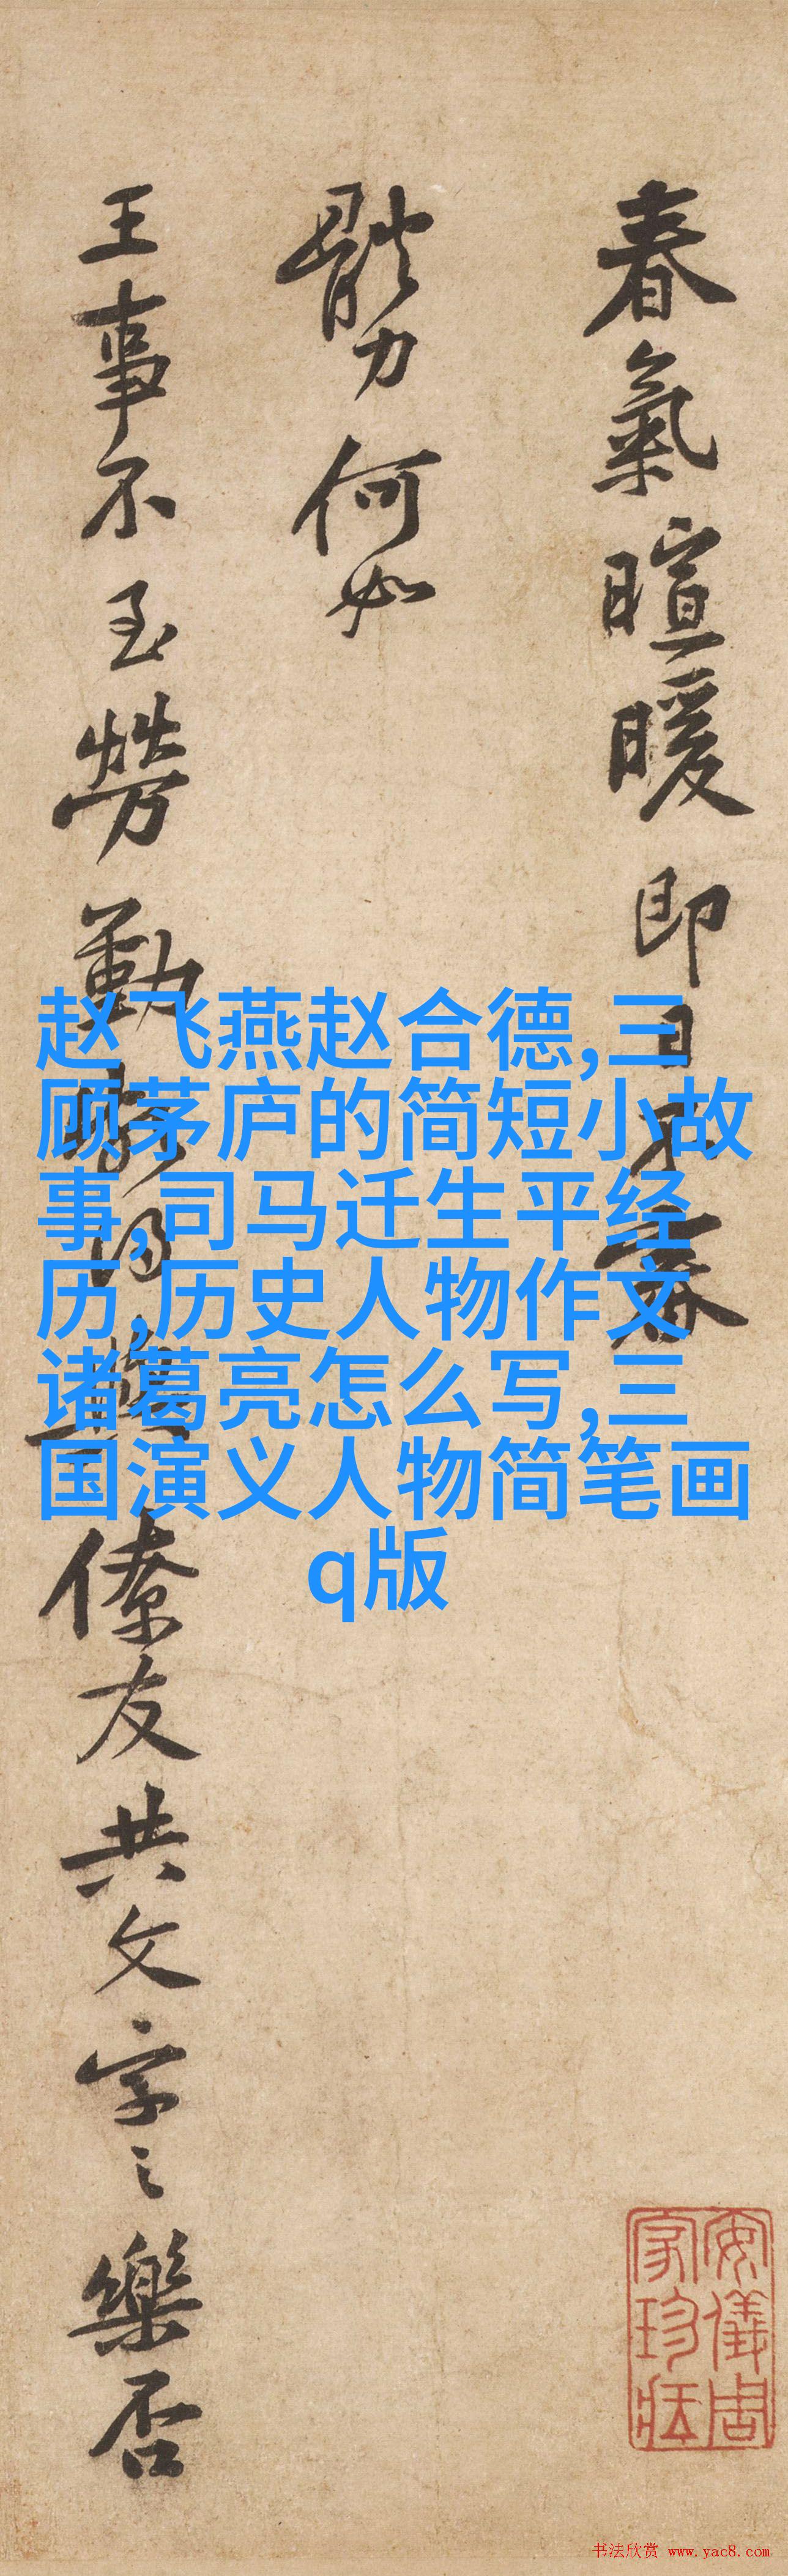 春氣暄暖即日不審
體力何如
王事不至勞勤頗得與僚友共文字之樂否
赵飞燕赵合德,三
顾茅庐的简短小故
事,司马迁生平经
历,历史人物作文
诸葛亮怎么写,三
国演义人物简笔画
q版
安儀周
家珍藏
书法欣赏 www.yac8.com